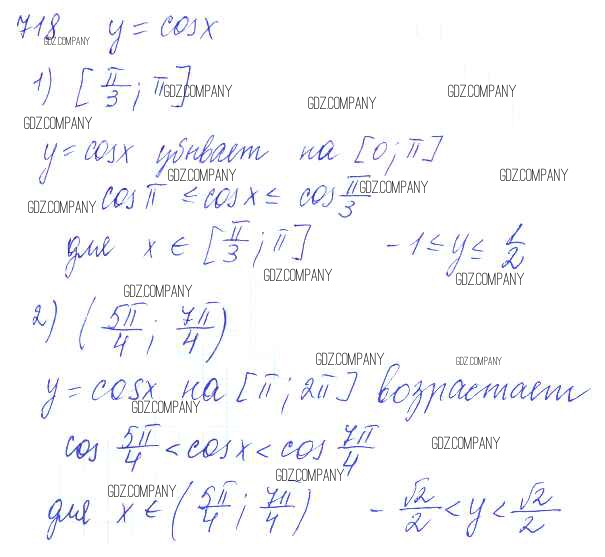 718 y = cosx
GDZ.COMPANY
1) [π/3; π]
GDZ.COMPANY GDZ.COMPANY GDZ.COMPANY
GDZ.COMPANY
y = cosx убывает на [0; π]
GDZ.COMPANY GDZ.COMPANY
cos π ≤ cosx ≤ cos π/3
GDZ.COMPANY GDZ.COMPANY
для x ∈ [π/3; π] -1 ≤ y ≤ 1/2
GDZ.COMPANY GDZ.COMPANY
GDZ.COMPANY
2) (5π/4; 7π/4)
GDZ.COMPANY GDZ.COMPANY
y = cosx на [π; 2π] возрастает
GDZ.COMPANY
cos 5π/4 < cosx < cos 7π/4
GDZ.COMPANY
GDZ.COMPANY
для x ∈ (5π/4; 7π/4) -√2/2 < y < √2/2
GDZ.COMPANY GDZ.COMPANY